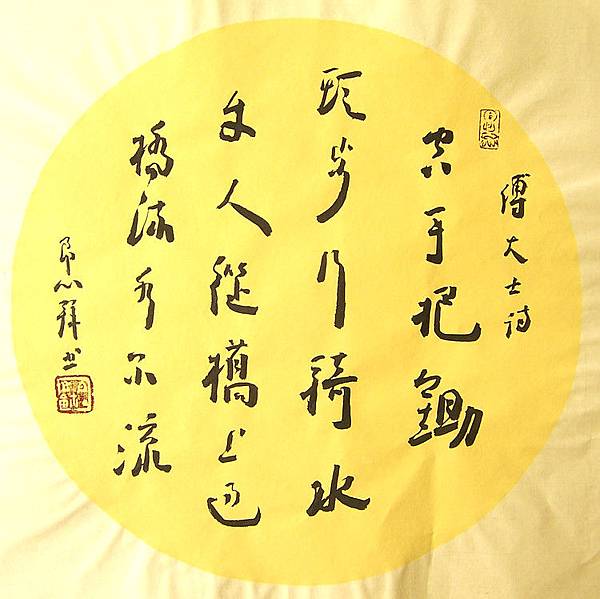 傅大士詩
空手把鋤
頭步行騎水
牛人從橋上過
橋流水不流
心